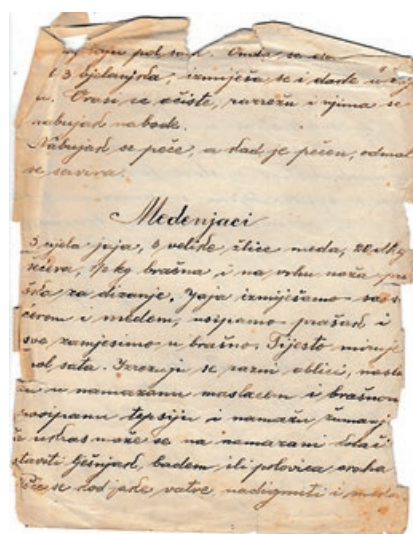 pol sata. Onda se
i 3 bjelanjka, izmiješa se i dade u
u. Orasi se očiste, razrežu i njima se
nabujak nabode.
Nabujak se peče, a kad je pečen, odmah
se servira.
Medenjaci
3 cijela jaja, 3 velike žlice meda, 20 dkg
šećera, 1/2 kg brašna i na vrhu noža pra
ška za dizanje. Jaja izmiješamo sa še
ćerom i medom, usipamo prašak i
sve zamjesimo u brašno. Tijesto miruje
pol sata. Izrezuju se razni oblici, naslo
u namazanu maslacem i brašnom
posipanu tepsiju i namažu žumanj
ukras može se na namazani kolač
staviti lješnjak, badem ili polovica oraha
se kod jake vatre, nadignuti i